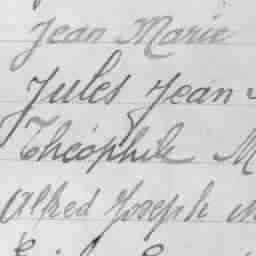 Jean Marie
Jules Jean
Théophile M
Alfred Joseph